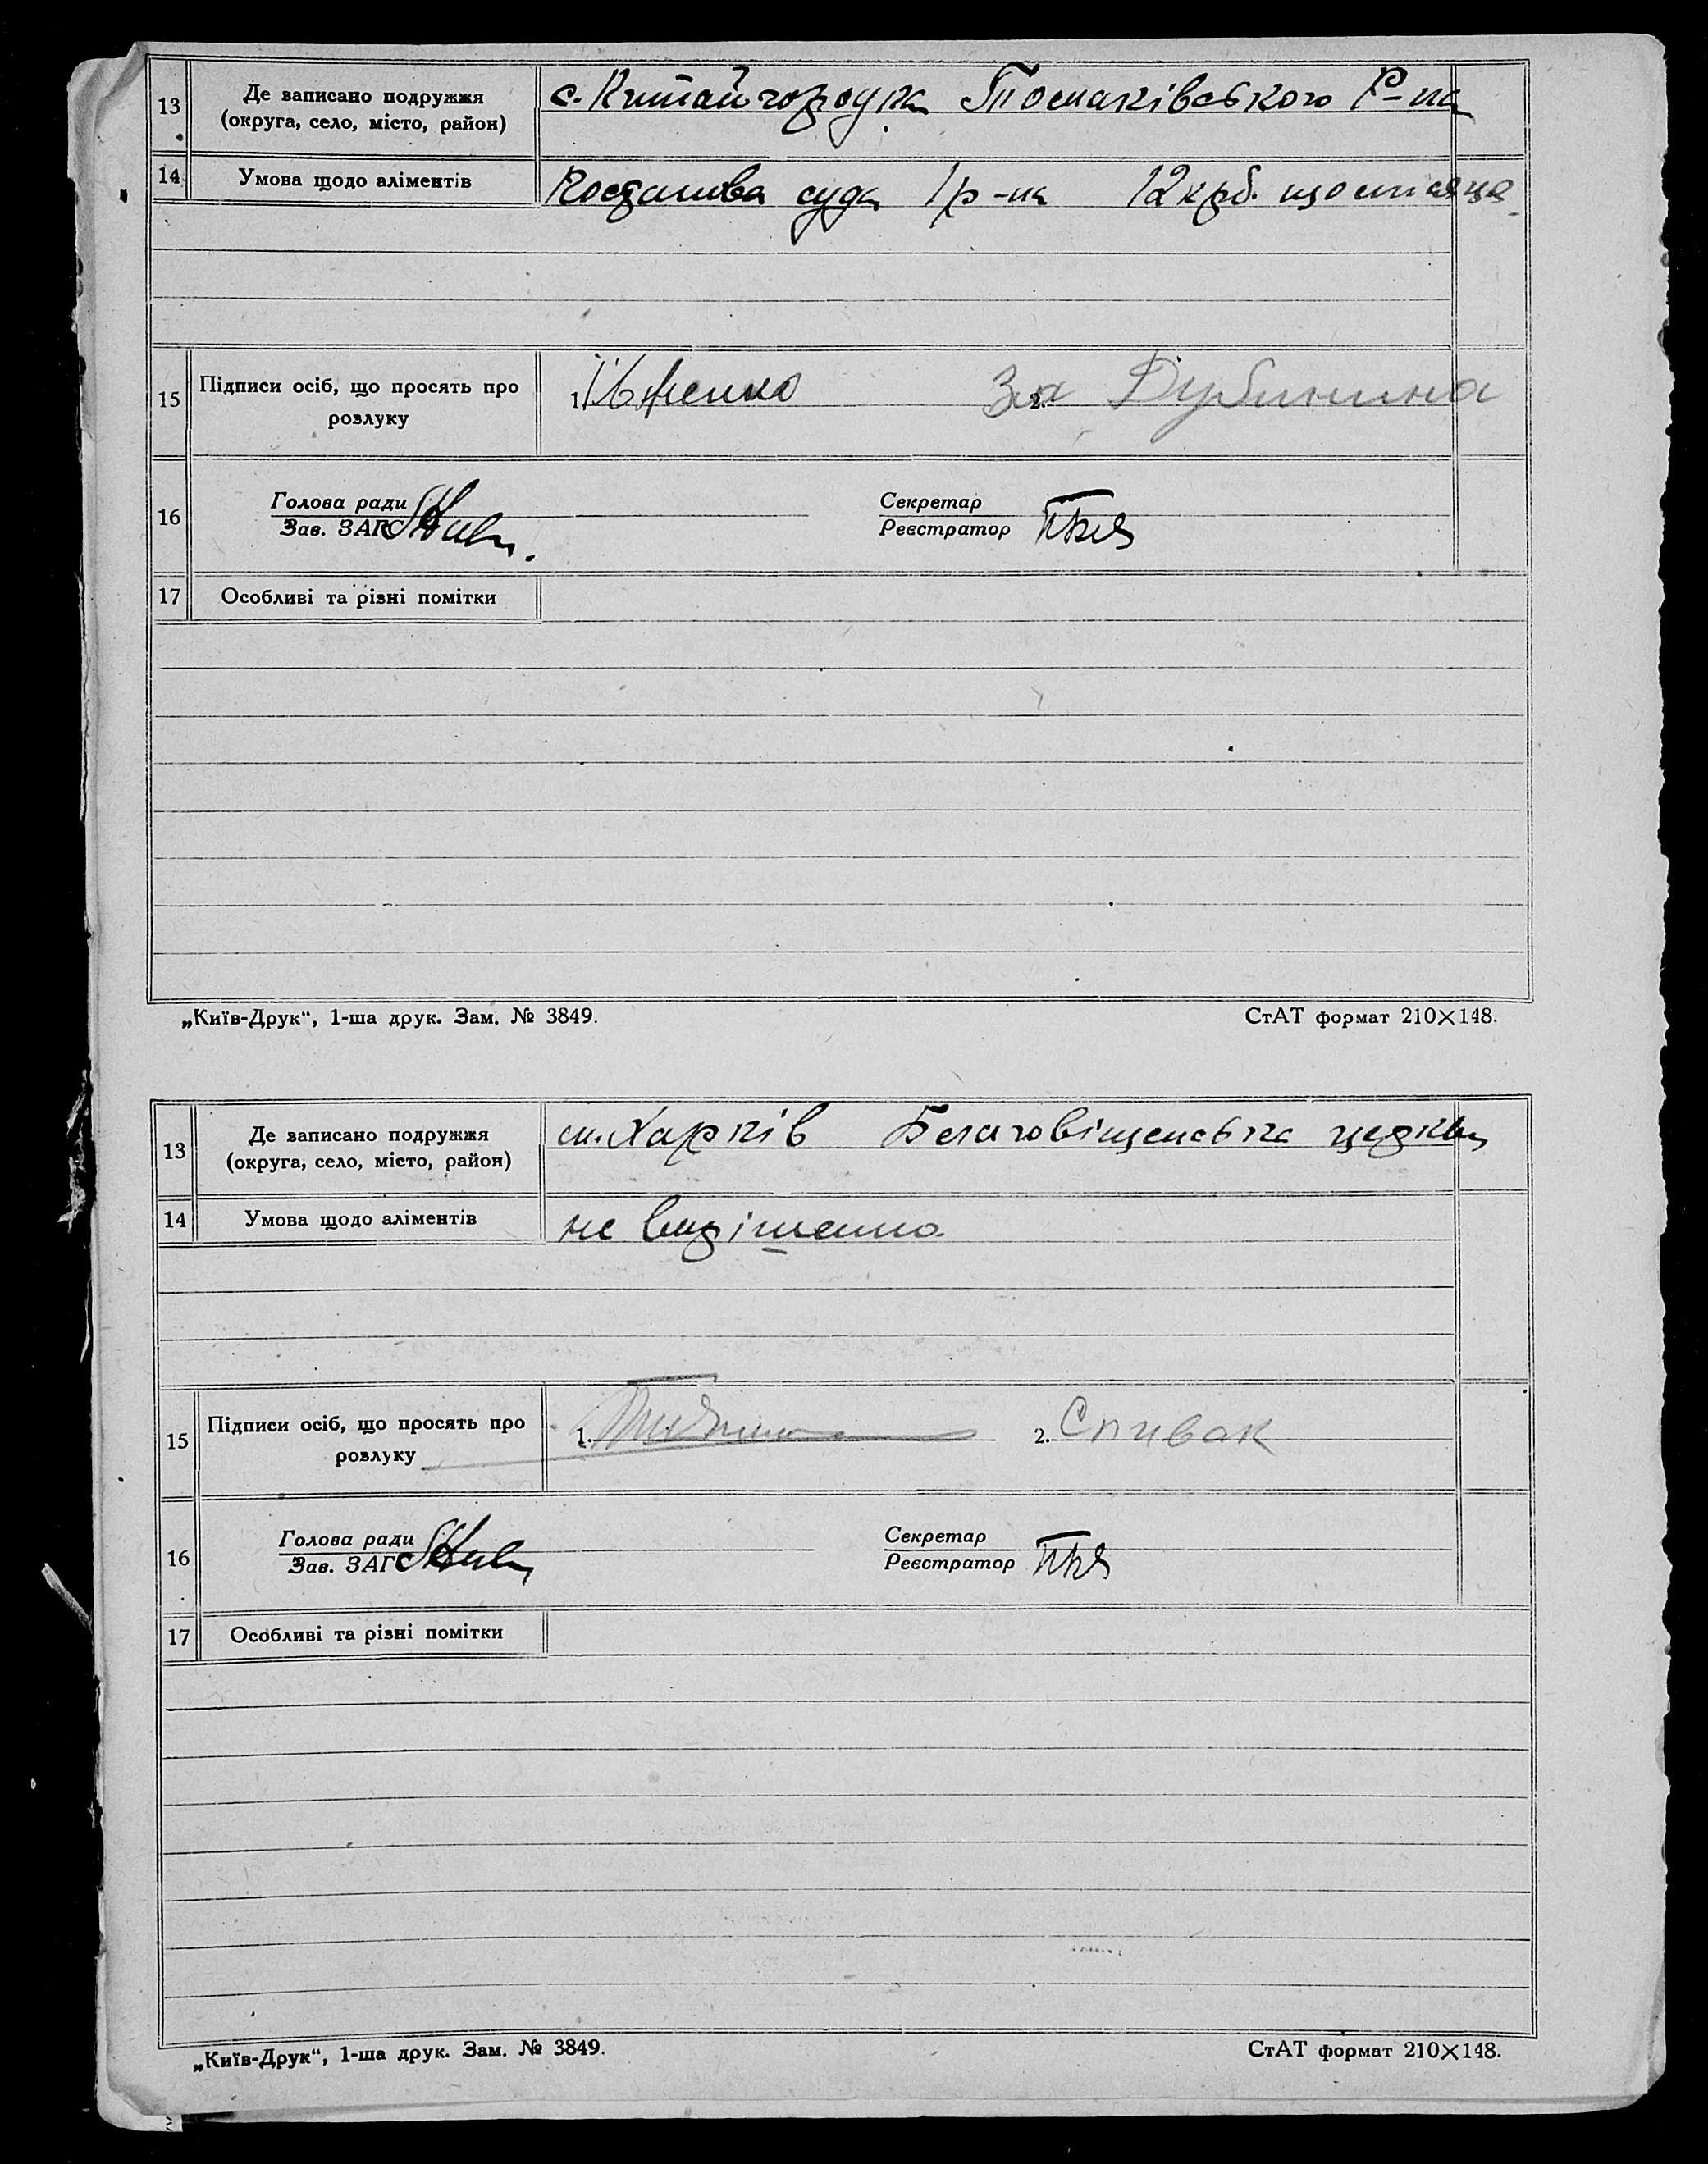 13 Де записано подружжя
(округа, село, місто, район)
с. Китайгородка Томаківського Р-на
14 Умова щодо аліментів
Постанова суда 1 р-на 12 крб. щомісяця
15 Підписи осіб, що просять про
розлуку
1. Івненко За 2. Дубинина
16 Голова ради
Зав. ЗАГС
Секретар
Реєстратор
17 Особливі та різні помітки
„Київ-Друк“, 1-ша друк. Зам. № 3849. СтАТ формат 210×148.
13 Де записано подружжя
(округа, село, місто, район)
м. Харків Благовіщенська церква
14 Умова щодо аліментів
не вирішенно
15 Підписи осіб, що просять про
розлуку
1. 2. Спивак
16 Голова ради
Зав. ЗАГС
Секретар
Реєстратор
17 Особливі та різні помітки
„Київ-Друк“, 1-ша друк. Зам. № 3849. СтАТ формат 210×148.